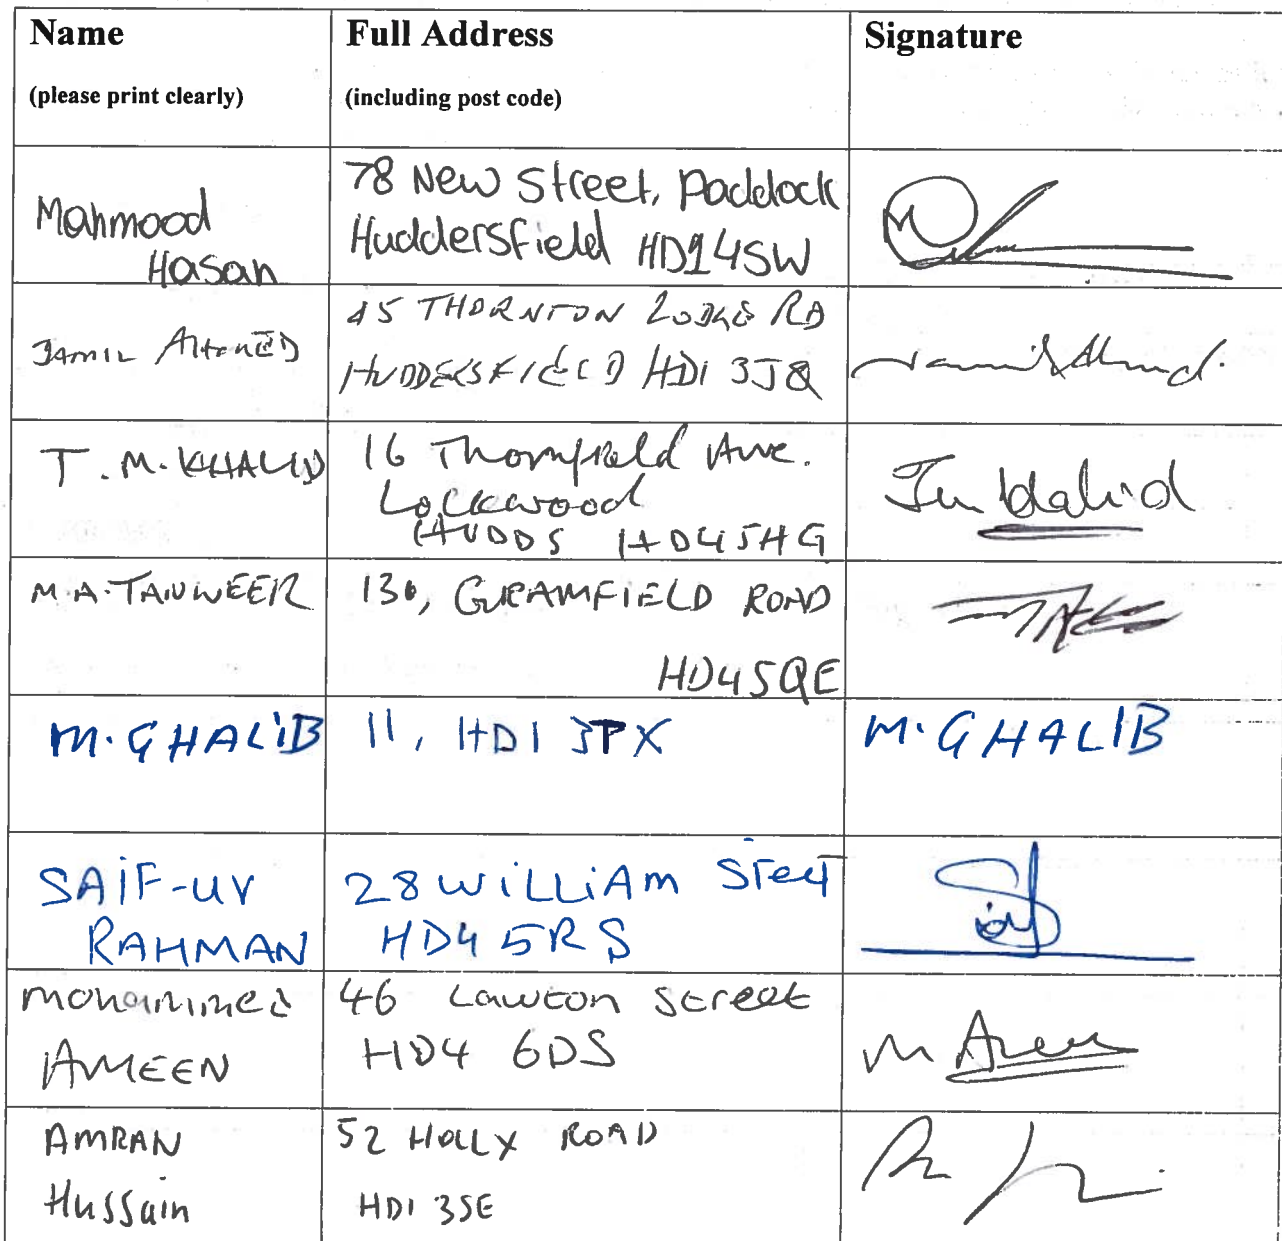 Name
(please print clearly)
Full Address
(including post code)
Signature
Mahmood
Hasan
78 New Street, Paddock
Huddersfield HD1 4SW
JAMIL AHMED
45 THORNTON LODGE RD
HUDDERSFIELD HD1 3JQ
Jamil Ahmed.
T. M. KHALID
16 Thornfield Ave.
Lockwood
HUDDS HD4 5HG
Khalid
M.A. TANWEER
130, ROAD
HD4 5QE
M. GHALIB
11, HD1 3PX
M. GHALIB
SAIF-UR
RAHMAN
28 WILLIAM Steet
HD4 5RS
Mohammed
AMEEN
46 Lawton Street
HD4 6DS
M Ameen
AMRAN
Hussain
52 HOLLY ROAD
HD1 3SE